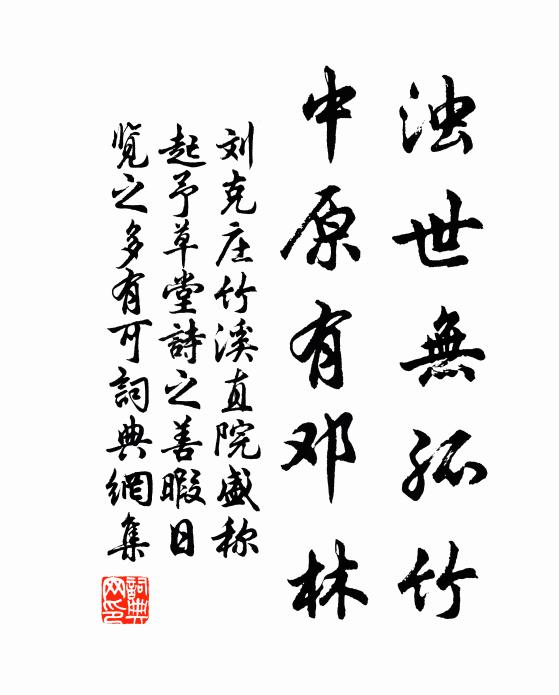 浊世無孤竹
中原有邓林
刘克庄竹溪直院盛称
起予草堂詩之善暇日
览之多有可詞典網集
詞典網印